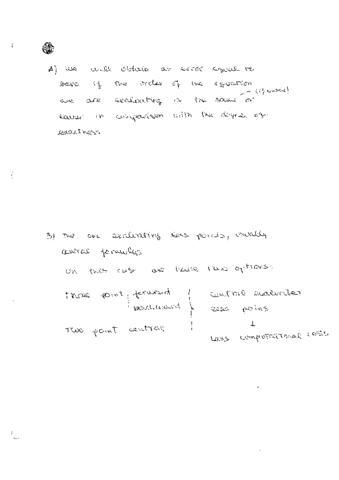 2) we will obtain an error equal to
zero if the order of the equation
we are evaluating is the same or
lower in comparison with the degree of
exactness
3) The one evaluating less points, usually
central formulas
in this case we have two options:
three point: forward
backward
Two point central
central evaluates
less points
↓
less computational cost